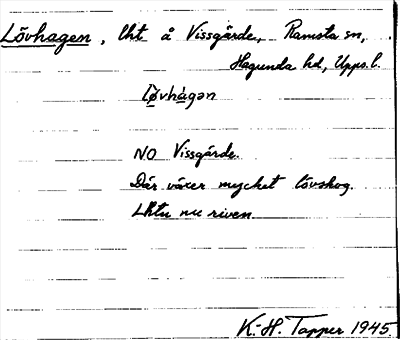 Lövhagen, lht å Vissgärde, Ramsta sn,
Hagunda hd, Upps. l.
Løvhagən
NO Vissgärde.
Där växer mycket lövskog.
Lhtn nu riven
K.-H. Tapper 1945